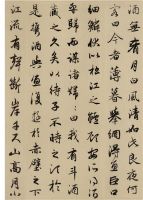 酒無肴月白風清如此良夜何
客曰今者薄暮舉網得魚巨口
細鱗狀似松江之鱸顧安所得酒
乎歸而謀諸婦婦曰我有斗酒
藏之久矣以待子不時之須於
是攜酒與魚復遊於赤壁之下
江流有聲斷岸千尺山高月小